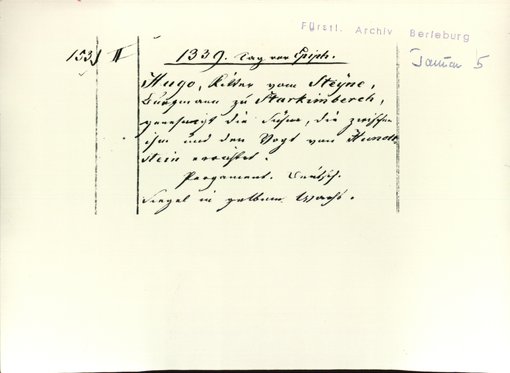 Fürstl. Archiv Berleburg
153) II 1339. Tag vor Epiph.
Januar 5
Hugo, Ritter vom Steyne,
Burgmann zu Starkinberch,
genehmigt die Sühne, die zwischen
ihm und dem Vogt von Hunolt-
stein errichtet.
Pergament. Deutsch.
Siegel in gelbem Wachs.